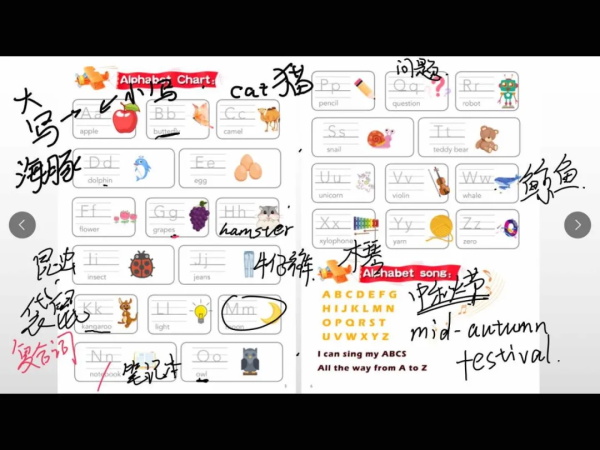 Alphabet Chart:
大写
小写
Aa
apple
Bb
butterfly
cat 猫
Cc
camel
海豚
Dd
dolphin
Ee
egg
Ff
flower
Gg
grapes
Hh
hamster
昆虫
Ii
insect
Jj
jeans
牛仔裤
袋鼠
Kk
kangaroo
Ll
light
Mm
复合词
Nn
notebook
笔记本
Oo
owl
5
Pp
pencil
问题
Qq
question
Rr
robot
Ss
snail
Tt
teddy bear
Uu
unicorn
Vv
violin
Ww
whale
鲸鱼
Xx
xylophone
木琴
Yy
yarn
Zz
zero
Alphabet song:
A B C D E F G
H I J K L M N
O P Q R S T
U V W X Y Z
I can sing my ABCS
All the way from A to Z
中秋节
mid-autumn
festival.
6